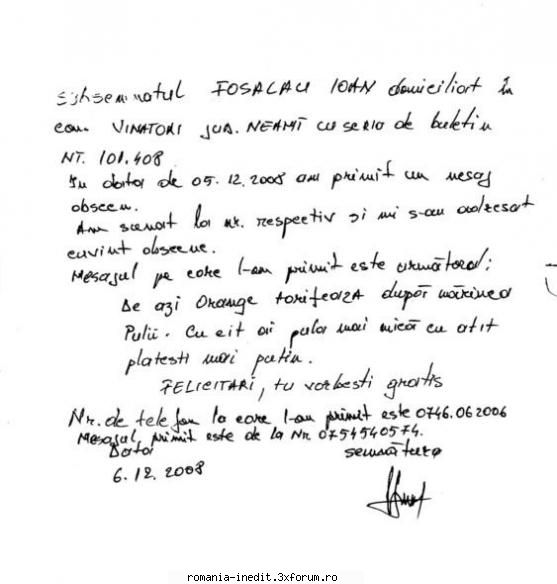 Subsemnatul FOSALAU IOAN domiciliat în
com. VINATORI JUD. NEAMT cu seria de buletin
NT. 101.408
In data de 05.12.2008 am primit un mesaj
obscen.
Am sunat la nr. respectiv și mi s-au adresat
cuvint obscene.
Mesajul pe care l-am primit este următorul:
De azi Orange tarifeaza după mărimea
Pulii. Cu cit ai pula mai mică cu atit
platesti mai putin.
FELICITARI, tu vorbesti gratis
Nr. de telefon la care l-am primit este 0746.062006
Mesajul primit este de la Nr. 0754540574.
Data semnătura
6.12.2008
romania-inedit.3xforum.ro